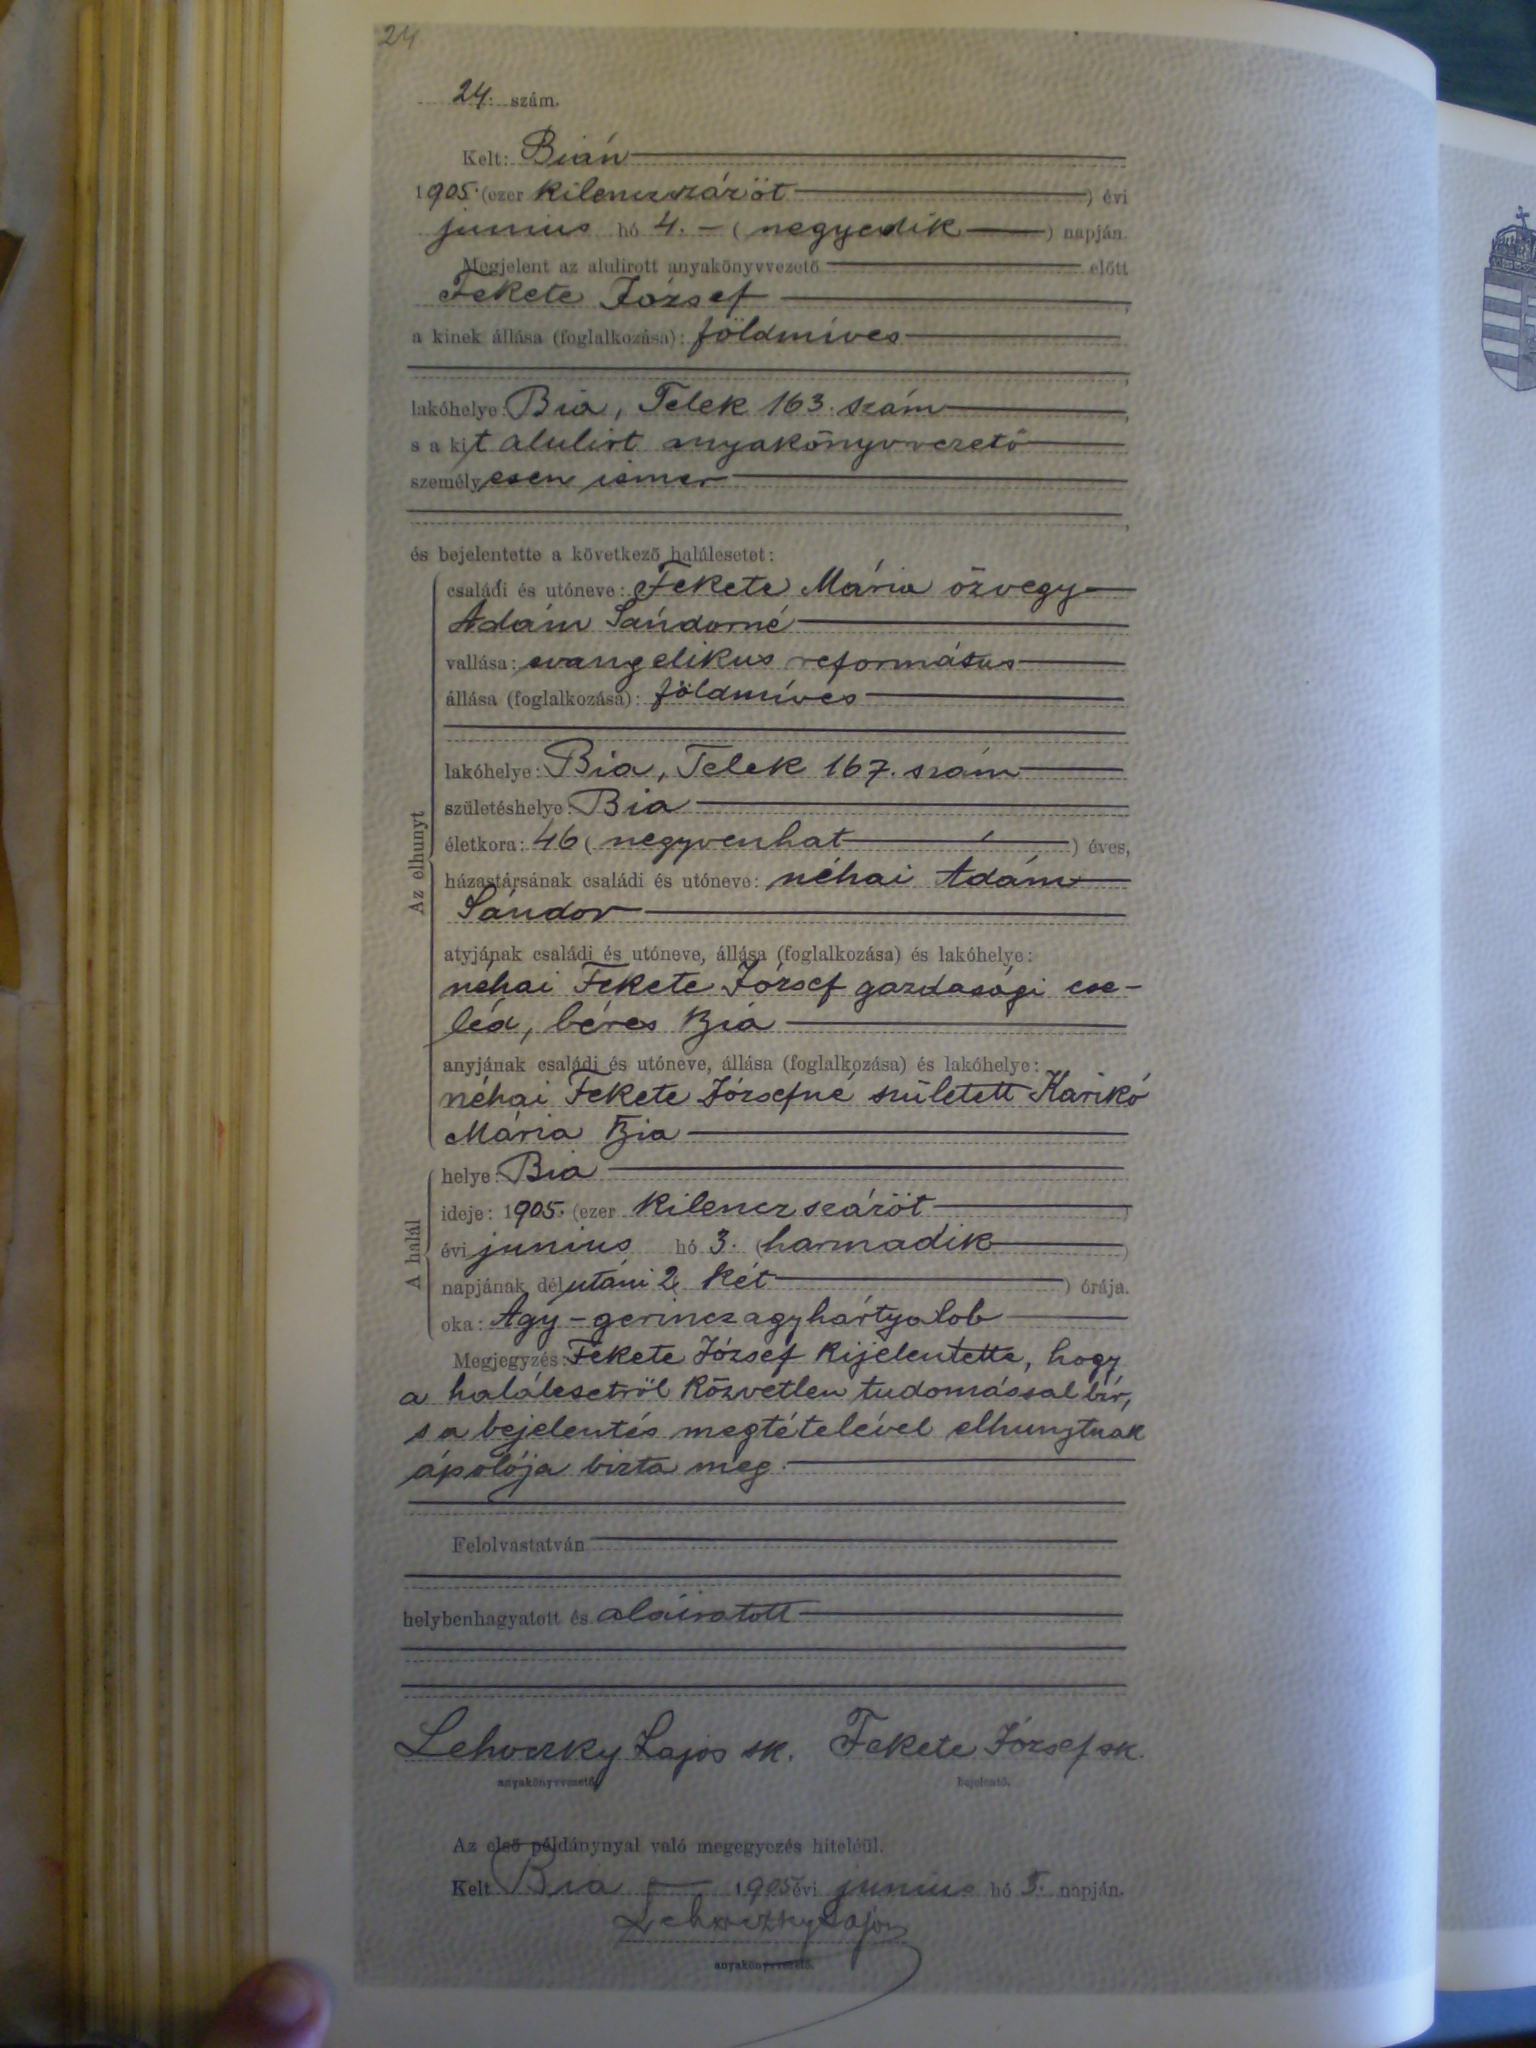 24
24. szám.
Kelt: Bián
1905. (ezer kilenczszázöt) évi
junius hó 4. – (negyedik) napján.
Megjelent az alulirott anyakönyvvezető előtt
Fekete József,
a kinek állása (foglalkozása): földmíves
lakóhelye: Bia, Telek 163. szám,
s a kit alulirt anyakönyvvezető
személyesen ismer
és bejelentette a következő halálesetet:
Az elhunyt
családi és utóneve: Fekete Mária özvegy
Adám Sándorné
vallása: evangelikus református
állása (foglalkozása): földmíves
lakóhelye: Bia, Telek 167. szám
születéshelye: Bia
életkora: 46 (negyvenhat) éves,
házastársának családi és utóneve: néhai Adám
Sándor
atyjának családi és utóneve, állása (foglalkozása) és lakóhelye:
néhai Fekete József gazdasági cse-
léd, béres Bia
anyjának családi és utóneve, állása (foglalkozása) és lakóhelye:
néhai Fekete Józsefné született Karikó
Mária Bia
A halál
helye: Bia
ideje: 1905. (ezer kilenczszázöt)
évi junius hó 3. (harmadik)
napjának délutáni 2 két) órája.
oka: Agy-gerinczagyhártyalob
Megjegyzés: Fekete József kijelentette, hogy
a halálesetröl közvetlen tudomással bir,
s a bejelentés megtételével elhunytnak
ápolója bizta meg.
Felolvastatván
helybenhagyatott és aláiratott
Lehoczky Lajos sk. Fekete József sk.
anyakönyvvezető. bejelentő.
Az első példánynyal való megegyezés hiteléül.
Kelt Bia 1905 évi junius hó 5. napján.
Lehoczky Lajos
anyakönyvvezető.